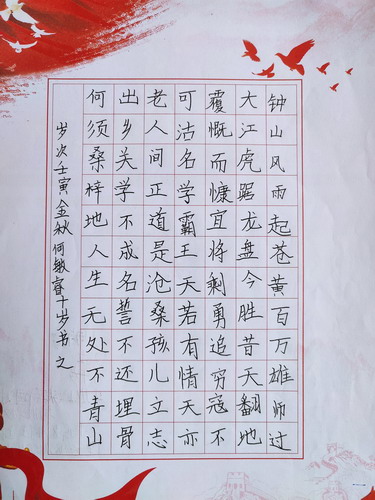 钟山风雨起苍黄百万雄师过
大江虎踞龙盘今胜昔天翻地
覆慨而慷宜将剩勇追穷寇不
可沽名学霸王天若有情天亦
老人间正道是沧桑孩儿立志
出乡关学不成名誓不还埋骨
何须桑梓地人生无处不青山
岁次壬寅金秋何敏睿十岁书之